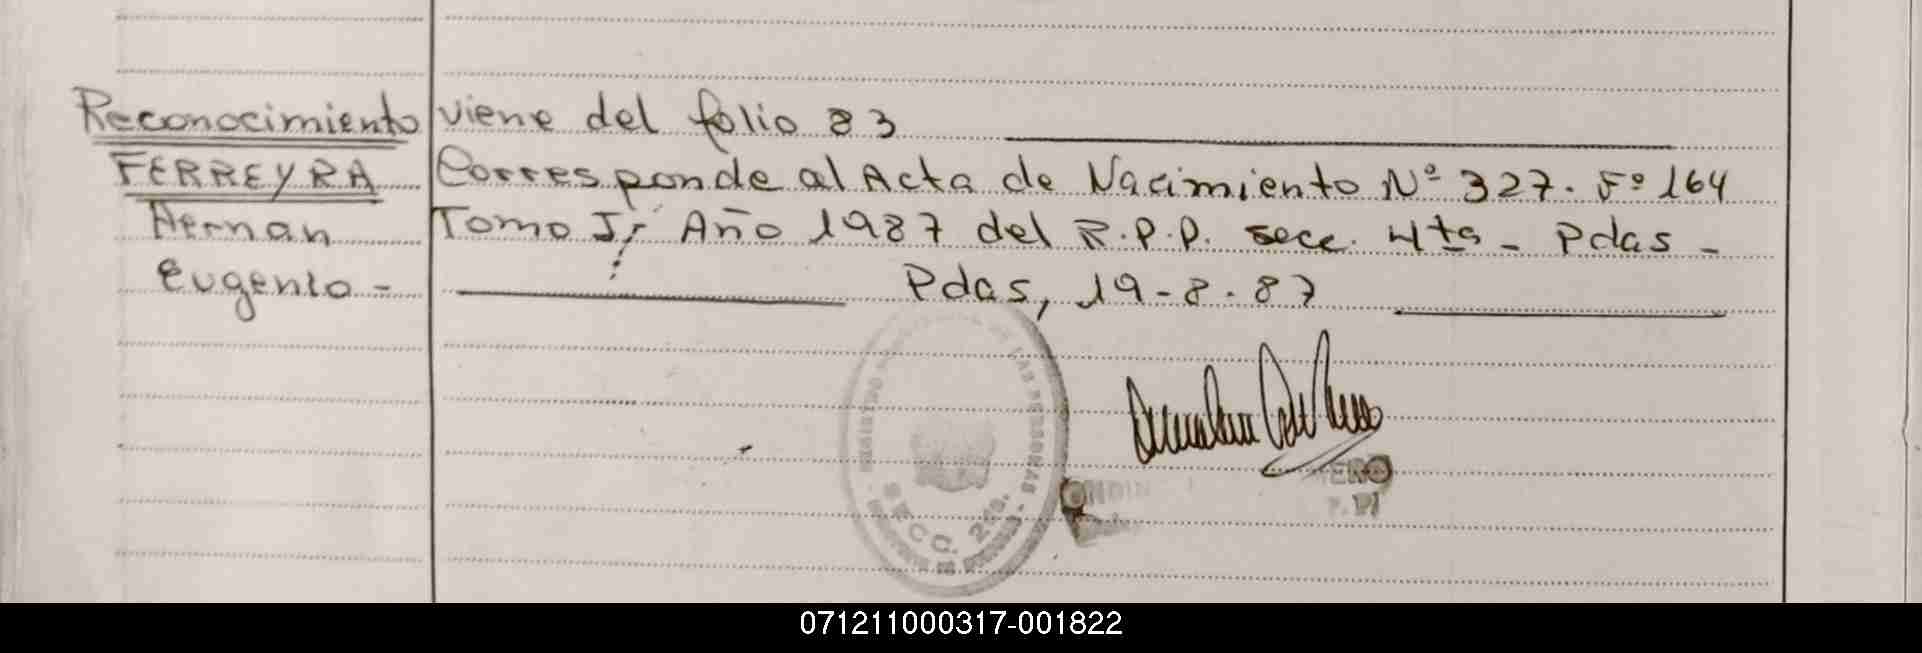 Reconocimiento viene del folio 83
FERREYRA Corresponde al Acta de Nacimiento Nº 327. Fº 164
Hernan Tomo I; Año 1987 del R.P.P. secc. 4ta - Pdas -
Eugenio - Pdas, 19-8-87
SECC. 2da.
071211000317-001822